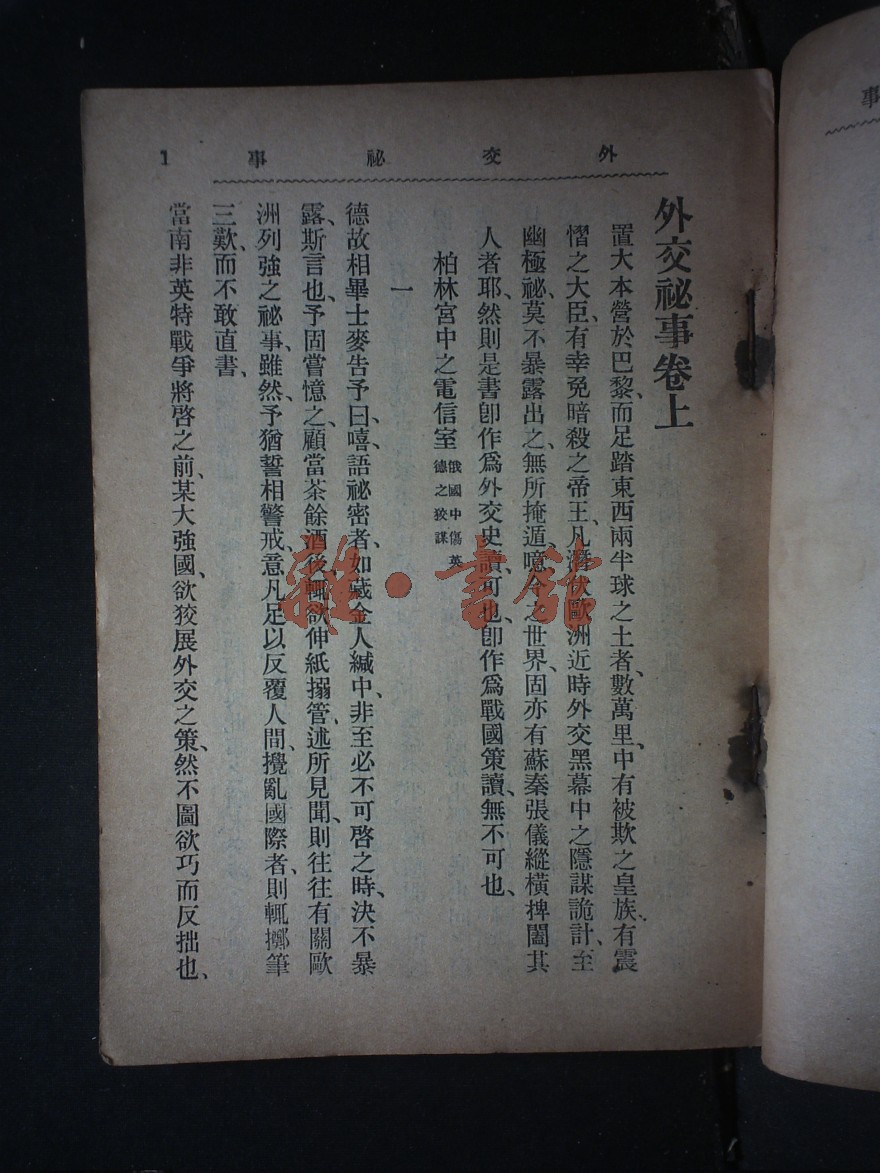 外交祕事 1
外交祕事卷上
置大本營於巴黎、而足踏東西兩半球之土者、數萬里、中有被欺之皇族、有震
慴之大臣、有幸免暗殺之帝王、凡潛伏歐洲近時外交黑幕中之隱謀詭計、至
幽極祕、莫不暴露出之、無所掩遁、噫今之世界、固亦有蘇秦張儀縱橫捭闔其
人者耶、然則是書卽作爲外交史讀、可也、卽作爲戰國策讀、無不可也、
柏林宮中之電信室 俄國中傷英
德之狡謀
一
德故相畢士麥告予曰、嘻、語祕密者、如藏金人緘中、非至必不可啓之時、決不暴
露、斯言也、予固嘗憶之、顧當茶餘酒後、輒欲伸紙搦管、述所見聞、則往往有關歐
洲列強之祕事、雖然、予猶誓相警戒、意凡足以反覆人間、攪亂國際者、則輒擲筆
三歎、而不敢直書、
當南非英特戰爭將啓之前、某大強國、欲狡展外交之策、然不圖欲巧而反拙也、
雜·書館
事